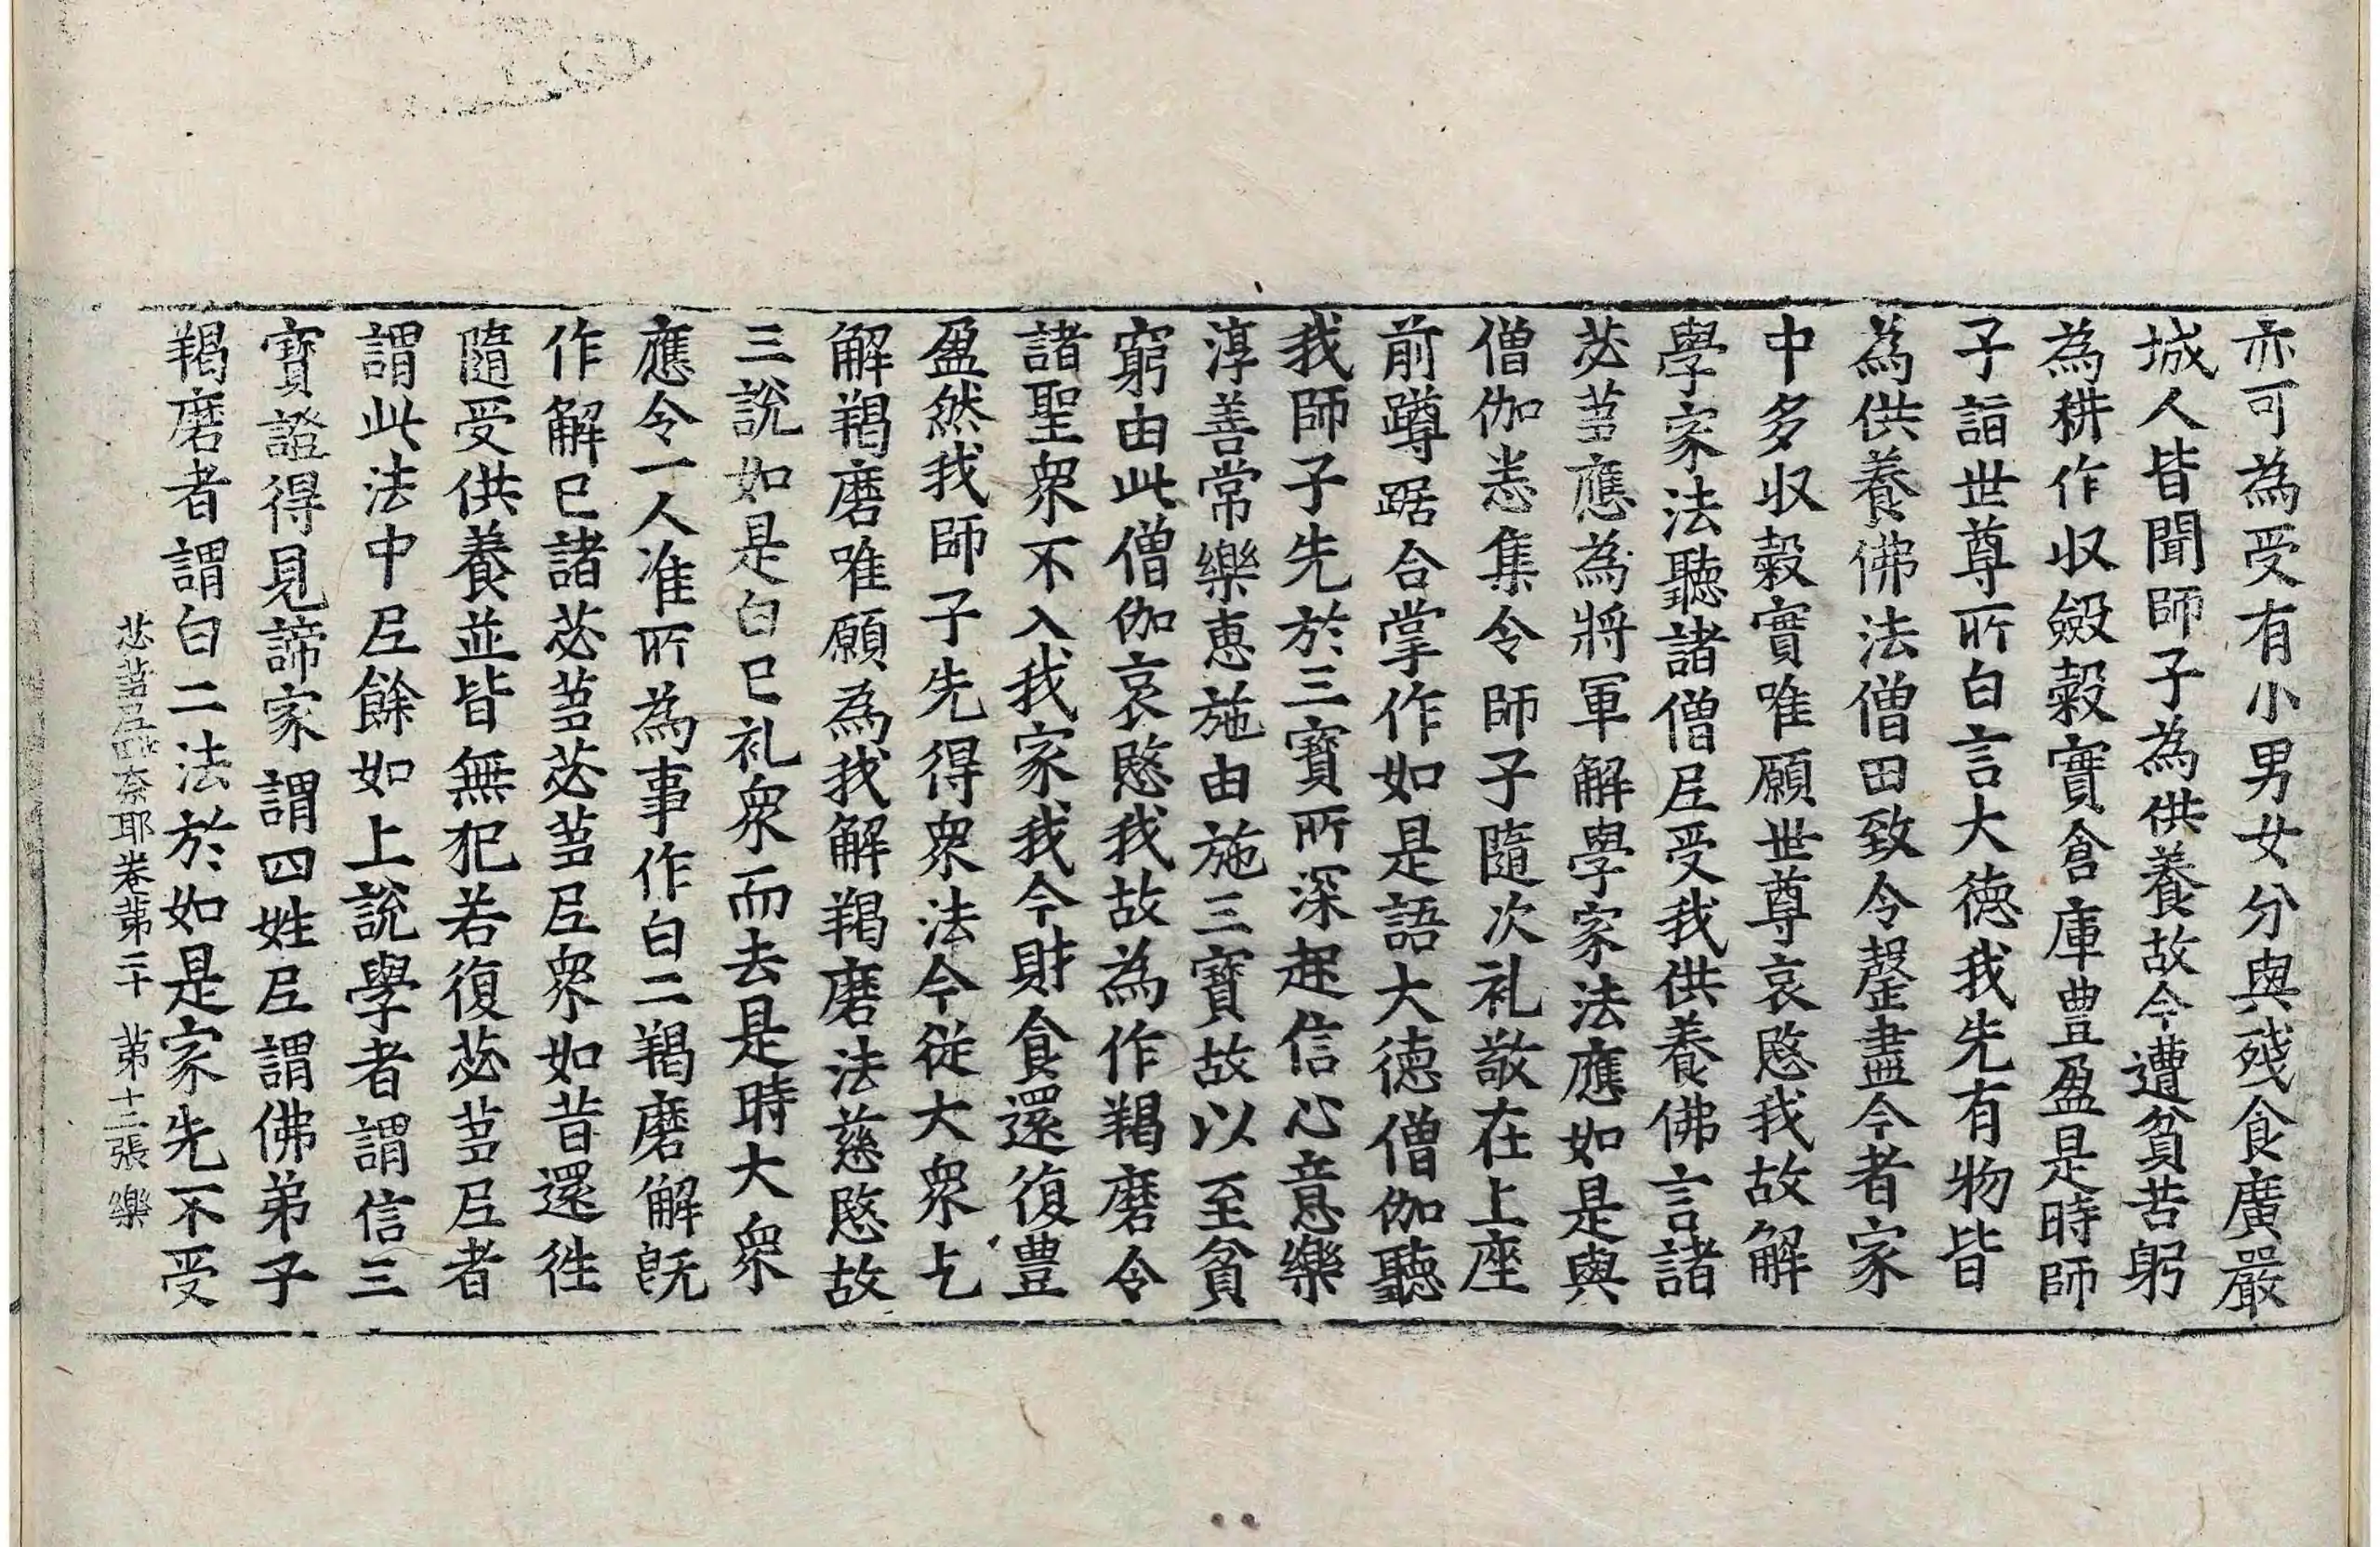 亦可為受有小男女分與殘食廣嚴
城人皆聞師子為供養故今遭貧苦躬
為耕作収斂穀實倉庫豊盈是時師
子詣世尊所白言大徳我先有物皆
為供養佛法僧田致令罄盡今者家
中多収穀實唯願世尊哀愍我故解
學家法聽諸僧尼受我供養佛言諸
苾芻應為將軍解學家法應如是與
僧伽恙集令師子隨次礼敬在上座
前蹲踞合掌作如是語大徳僧伽聽
我師子先於三寶所深起信心意樂
淳善常樂恵施由施三寶故以至貧
窮由此僧伽哀愍我故為作羯磨令
諸聖衆不入我家我今財食還復豊
盈然我師子先得衆法今從大衆乞
解羯磨唯願為我解羯磨法慈愍故
三說如是白已礼衆而去是時大衆
應令一人准所為事作白二羯磨解旣
作解已諸苾芻苾芻尼衆如昔還徃
隨受供養並皆無犯若復苾芻尼者
謂此法中尼餘如上說學者謂信三
寶證得見諦家謂四姓尼謂佛弟子
羯磨者謂白二法於如是家先不受
苾芻尼毗奈耶卷第二十 第十二張 樂